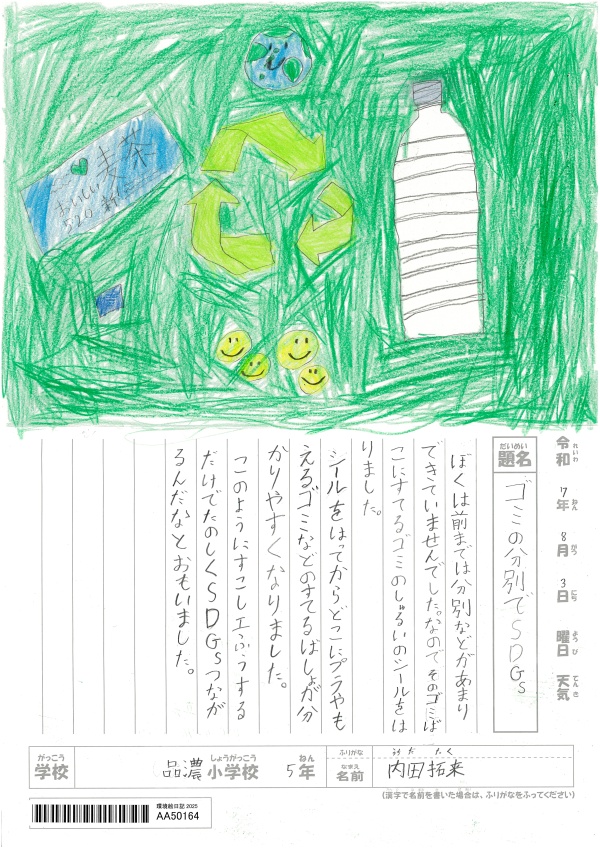 麦茶
おいしい
520
令和7年8月3日 曜日 天気
れいわ ねん がつ にち ようび てんき
だいめい
題名
ゴミの分別でSDGs
ぼくは前までは分別などがあまり
できていませんでした。なのでそのゴミば
こにすてるゴミのしゅるいのシールをは
りました。
シールをはってからどこにプラやも
えるゴミなどのすてるばしょが分
かりやすくなりました。
このようにすこし工ふうする
だけでたのしくSDGsつなが
るんだなとおもいました。
がっこう しょうがっこう ねん
学校 品濃小学校 5年
ふりがな うちだ たく
なまえ
名前 内田拓来
(漢字で名前を書いた場合は、ふりがなをふってください)
環境絵日記 2025
AA50164